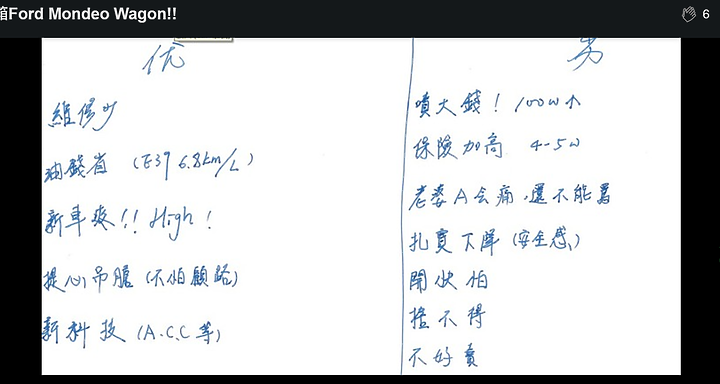 箱Ford Mondeo Wagon!!
6
优
維修少
油錢省 (E39 6.8km/L)
新車爽!! High!
提心吊膽 (不怕顧路)
新科技 (A.C.C 等)
劣
噴大錢! 100W↑
保險加高 4-5W
老婆A会痛,還不能罵
扎實下降 (安全感)
開快怕
捨不得
不好賣